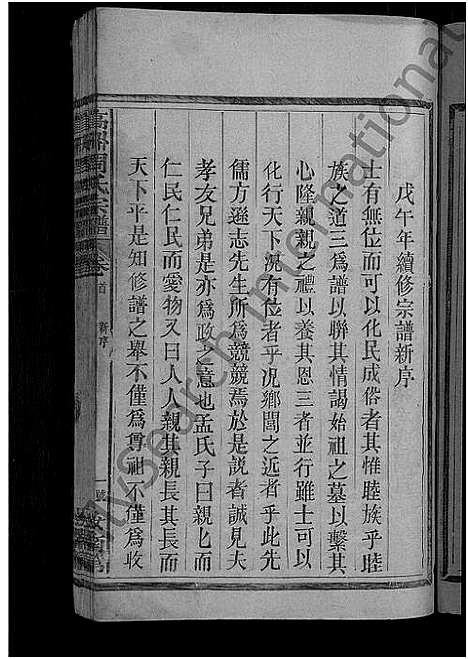 戊午年續修宗譜新序
士有無位而可以化民成俗者其惟睦族乎睦
族之道三為譜以聯其情謁始祖之墓以繫其
心隆親親之禮以養其恩三者並行雖士可以
化行天下況有位者乎況鄉閭之近者乎此先
儒方遜志先生所為競競焉於是說者誠見夫
孝友兄弟是亦為政之意也孟氏子曰親匕而
仁民仁民而愛物又曰人人親其親長其長而
天下平是知修譜之舉不僅為尊祖不僅為收
周氏宗譜
卷首
新序
一號
MySearch International